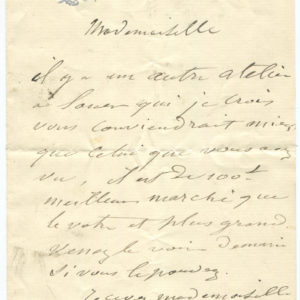 Mademoiselle
il y a un autre atelier
a louer qui je crois
vous conviendrait mieux
que celui que vous avez
vu, il est de 100f
meilleur marché que
le votre et plus grand.
Venez le voir demain
si vous le pouvez.
Recevez mademoiselle